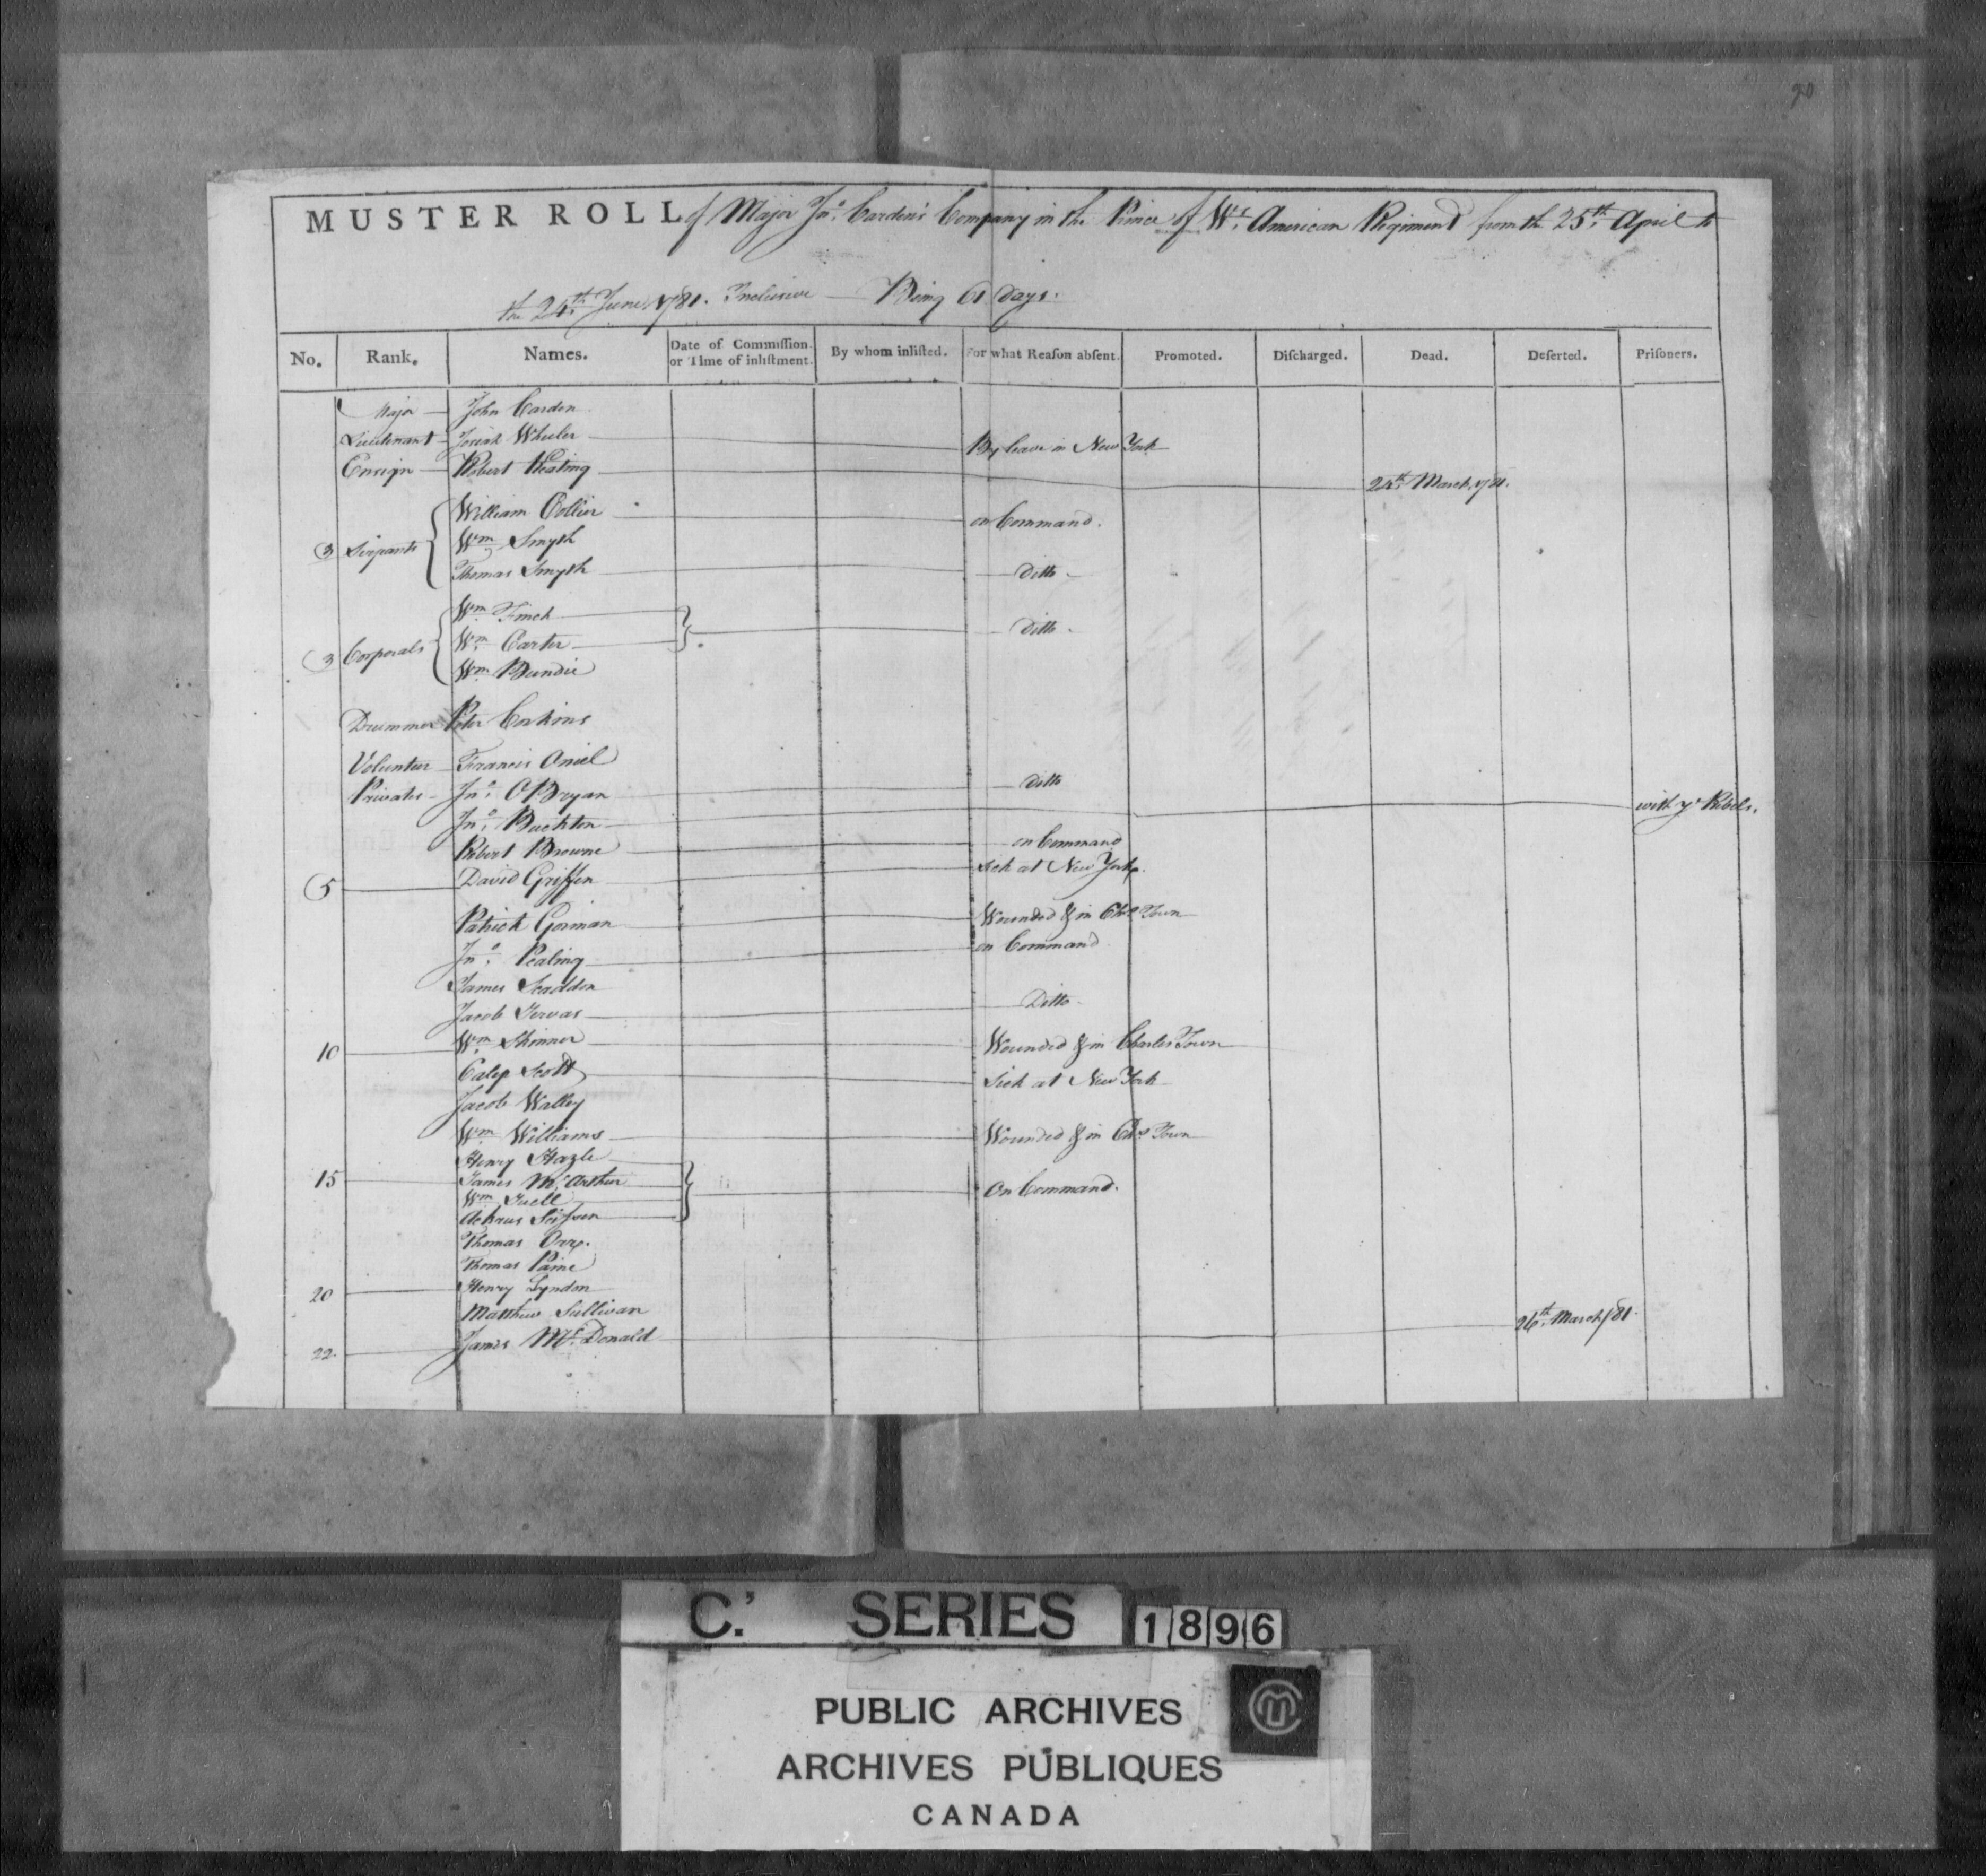 90
MUSTER ROLL of Major Jno. Carden's Company in the Prince of Ws. American Regiment from the 25th April to
the 24th June 1781. Inclusive — Being 61 Days.
No. Rank. Names. Date of Commiſſion. or Time of inliſtment. By whom inliſted. For what Reaſon abſent. Promoted. Diſcharged. Dead. Deſerted. Priſoners.
Major John Carden
Lieutenant Josiah Wheeler By leave in New York
Ensign Robert Keating 24th March 1781.
William Collier on Command.
3 Serjeants Wm Smyth
Thomas Smyth Ditto
Wm Finch Ditto
3 Corporals Wm Carter
Wm Bundie
Drummer Peter Corkins
Volunteer Francis Oniel
Privates Jno. OBryan Ditto
Jno. Buckton with ye Rebels.
Robert Browne on Command
5 David Griffen Sick at New York.
Patrick Gorman Wounded & in Chs Town
Jno. Pealing on Command
James Scaddon
Jacob Jervas Ditto
10 Wm Skinner Wounded & in Charles Town
Calep Scott Sick at New York
Jacob Walley
Wm Williams Wounded & in Chs Town
Henry Hazle
15 James Mc Arthur On Command.
Wm Juell
Thomas Orre.
Thomas Paine
20 Henry Lyndon
Matthew Sullivan
22 James Mc Donald 26th March 1781.
C.' SERIES 1896
PUBLIC ARCHIVES
ARCHIVES PUBLIQUES
CANADA